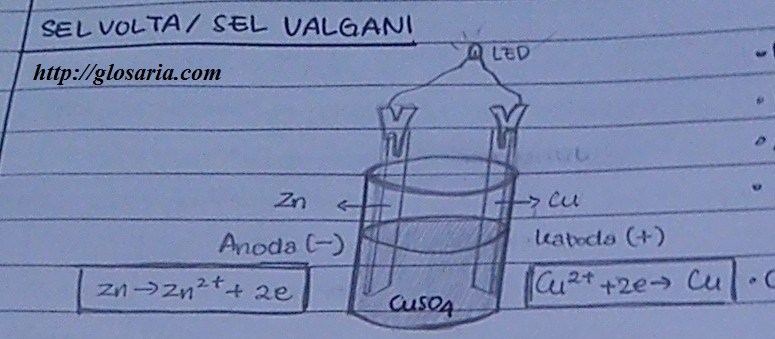 SEL VOLTA/ SEL VALGANI
http://glosaria.com
LED
Zn
Cu
Anoda (-)
Katoda (+)
Zn → Zn²⁺ + 2e
Cu²⁺ + 2e → Cu
CuSO4